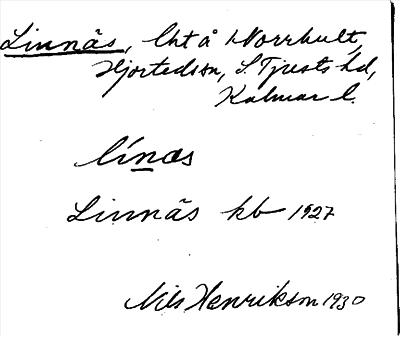 Linnäs, lht å Norrhult,
Hjorteds sn, S. Tjusts hd,
Kalmar l.
línas
Linnäs kb 1927
Nils Henrikson 1930